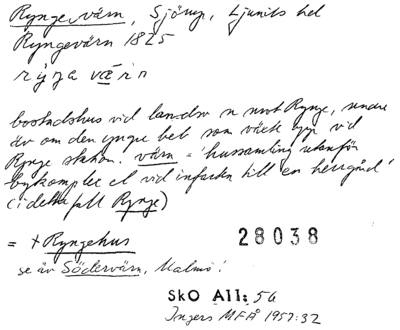 Ryngevärn, Sjörup, Ljunits hd
Ryngevärn 1825
bostadshus vid landsv n nmt Rynge, senare
äv om den yngre beb som växt upp vid
Rynge station. värn = 'hussamling utanför
bykomplex el vid infarten till en herrgård'
(i detta fall Rynge)
= + Ryngehus 28038
se äv Södervärn, Malmö!
SkO All: 56
Ingers MFÅ 1957:32